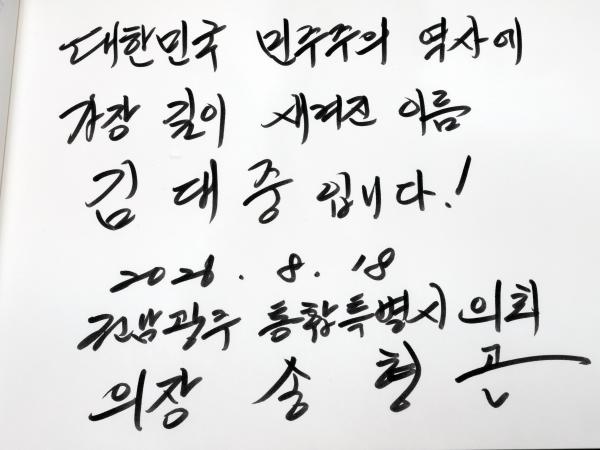 대한민국 민주주의 역사에
가장 깊이 새겨진 이름
김대중 입니다.!
2026. 8. 18
전남광주 통합특별시의회
의장 송형곤